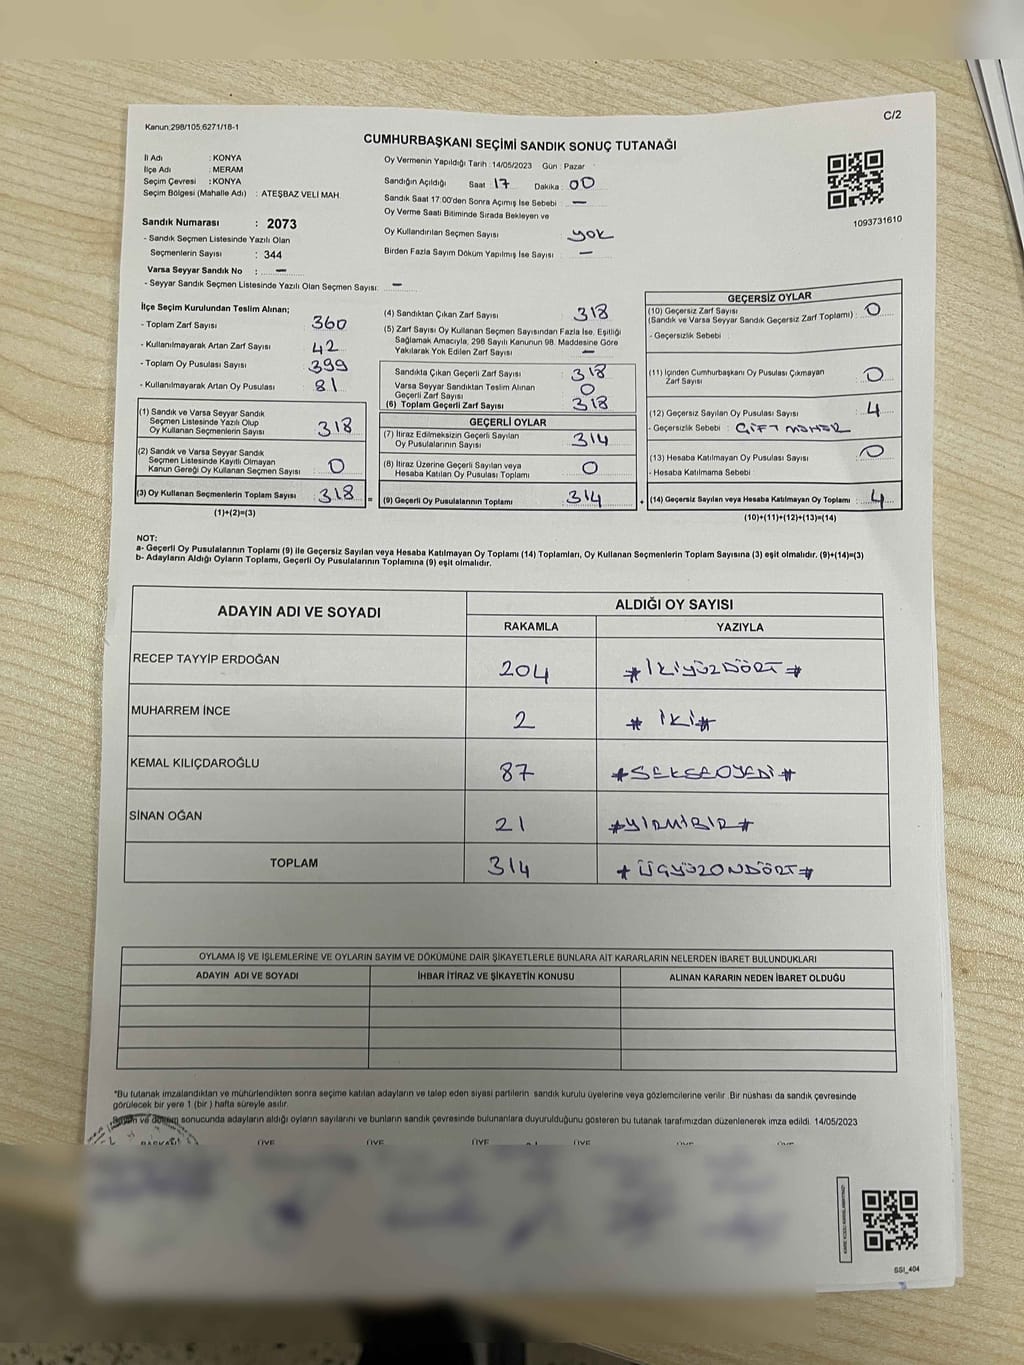 C/2
Kanun,298/105,6271/18-1
CUMHURBAŞKANI SEÇİMİ SANDIK SONUÇ TUTANAĞI
İl Adı : KONYA
İlçe Adı : MERAM
Seçim Çevresi : KONYA
Seçim Bölgesi (Mahalle Adı) : ATEŞBAZ VELİ MAH.
Oy Vermenin Yapıldığı Tarih :14/05/2023 Gün : Pazar
Sandığın Açıldığı Saat : 17 Dakika : 00
Sandık Saat 17:00'den Sonra Açımış İse Sebebi : —
Oy Verme Saati Bitiminde Sırada Bekleyen ve
Oy Kullandırılan Seçmen Sayısı : yok
Birden Fazla Sayım Döküm Yapılmış İse Sayısı : —
1093731610
Sandık Numarası : 2073
- Sandık Seçmen Listesinde Yazılı Olan
Seçmenlerin Sayısı : 344
Varsa Seyyar Sandık No : —
- Seyyar Sandık Seçmen Listesinde Yazılı Olan Seçmen Sayısı: —
İlçe Seçim Kurulundan Teslim Alınan;
- Toplam Zarf Sayısı : 360
- Kullanılmayarak Artan Zarf Sayısı : 42
- Toplam Oy Pusulası Sayısı : 399
- Kullanılmayarak Artan Oy Pusulası : 81
(1) Sandık ve Varsa Seyyar Sandık
Seçmen Listesinde Yazılı Olup
Oy Kullanan Seçmenlerin Sayısı : 318
(2) Sandık ve Varsa Seyyar Sandık
Seçmen Listesinde Kayıtlı Olmayan
Kanun Gereği Oy Kullanan Seçmen Sayısı : 0
(3) Oy Kullanan Seçmenlerin Toplam Sayısı : 318 =
(1)+(2)=(3)
(4) Sandıktan Çıkan Zarf Sayısı : 318
(5) Zarf Sayısı Oy Kullanan Seçmen Sayısından Fazla İse, Eşitliği
Sağlamak Amacıyla, 298 Sayılı Kanunun 98. Maddesine Göre
Yakılarak Yok Edilen Zarf Sayısı : —
Sandıkta Çıkan Geçerli Zarf Sayısı : 318
Varsa Seyyar Sandıktan Teslim Alınan
Geçerli Zarf Sayısı : 0
(6) Toplam Geçerli Zarf Sayısı : 318
GEÇERLİ OYLAR
(7) İtiraz Edilmeksizin Geçerli Sayılan
Oy Pusulalarının Sayısı : 314
(8) İtiraz Üzerine Geçerli Sayılan veya
Hesaba Katılan Oy Pusulası Toplamı : 0
(9) Geçerli Oy Pusulalarının Toplamı : 314 +
GEÇERSİZ OYLAR
(10) Geçersiz Zarf Sayısı
(Sandık ve Varsa Seyyar Sandık Geçersiz Zarf Toplamı) : 0
- Geçersizlik Sebebi :
(11) İçinden Cumhurbaşkanı Oy Pusulası Çıkmayan
Zarf Sayısı : 0
(12) Geçersiz Sayılan Oy Pusulası Sayısı : 4
- Geçersizlik Sebebi : ÇİFT MÜHÜR
(13) Hesaba Katılmayan Oy Pusulası Sayısı : 0
- Hesaba Katılmama Sebebi
(14) Geçersiz Sayılan veya Hesaba Katılmayan Oy Toplamı : 4
(10)+(11)+(12)+(13)=(14)
NOT:
a- Geçerli Oy Pusulalarının Toplamı (9) ile Geçersiz Sayılan veya Hesaba Katılmayan Oy Toplamı (14) Toplamları, Oy Kullanan Seçmenlerin Toplam Sayısına (3) eşit olmalıdır. (9)+(14)=(3)
b- Adayların Aldığı Oyların Toplamı, Geçerli Oy Pusulalarının Toplamına (9) eşit olmalıdır.
ADAYIN ADI VE SOYADI ALDIĞI OY SAYISI
RAKAMLA YAZIYLA
RECEP TAYYİP ERDOĞAN 204 # İKİYÜZDÖRT #
MUHARREM İNCE 2 # İKİ #
KEMAL KILIÇDAROĞLU 87 # SEKSENYEDİ #
SİNAN OĞAN 21 # YİRMİBİR #
TOPLAM 314 # ÜÇYÜZONDÖRT #
OYLAMA İŞ VE İŞLEMLERİNE VE OYLARIN SAYIM VE DÖKÜMÜNE DAİR ŞİKAYETLERLE BUNLARA AİT KARARLARIN NELERDEN İBARET BULUNDUKLARI
ADAYIN ADI VE SOYADI İHBAR İTİRAZ VE ŞİKAYETİN KONUSU ALINAN KARARIN NEDEN İBARET OLDUĞU
*Bu tutanak imzalandıktan ve mühürlendikten sonra seçime katılan adayların ve talep eden siyasi partilerin sandık kurulu üyelerine veya gözlemcilerine verilir. Bir nüshası da sandık çevresinde
görülecek bir yere 1 (bir ) hafta süreyle asılır.
Sayım ve döküm sonucunda adayların aldığı oyların sayılarını ve bunların sandık çevresinde bulunanlara duyurulduğunu gösteren bu tutanak tarafımızdan düzenlenerek imza edildi. 14/05/2023
ÜYE ÜYE ÜYE ÜYE
SSI_404